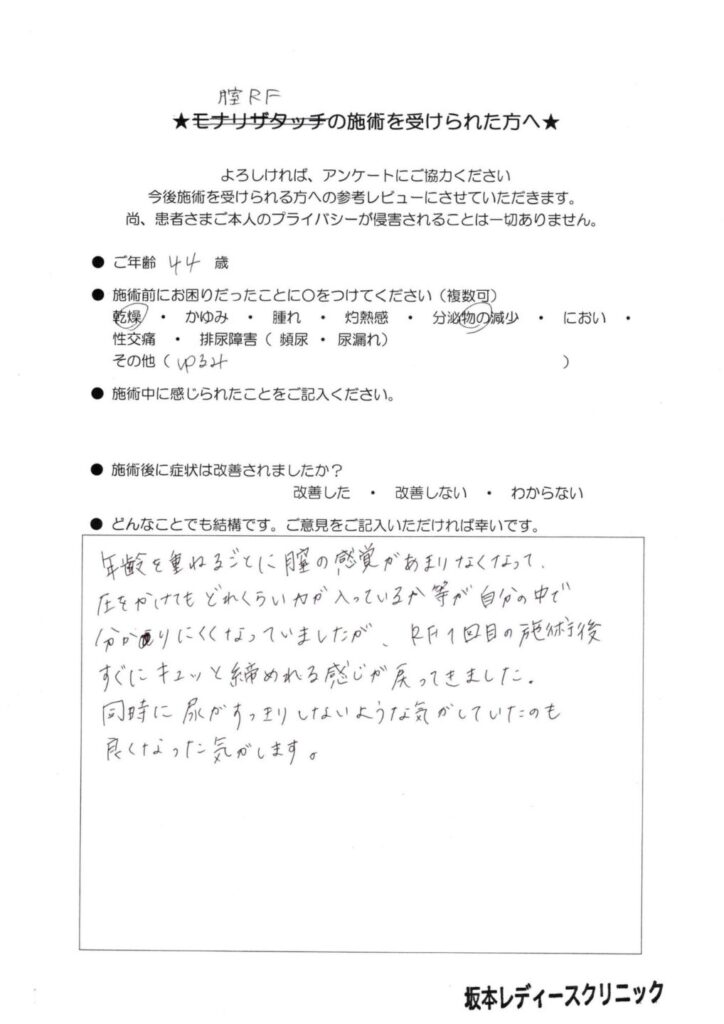 膣RF
★モナリザタッチの施術を受けられた方へ★
よろしければ、アンケートにご協力ください
今後施術を受けられる方への参考レビューにさせていただきます。
尚、患者さまご本人のプライバシーが侵害されることは一切ありません。
● ご年齢 44 歳
● 施術前にお困りだったことに〇をつけてください（複数可）
乾燥 ・ かゆみ ・ 腫れ ・ 灼熱感 ・ 分泌物の減少 ・ におい ・
性交痛 ・ 排尿障害（ 頻尿 ・ 尿漏れ）
その他（ ゆるみ ）
● 施術中に感じられたことをご記入ください。
● 施術後に症状は改善されましたか？
改善した ・ 改善しない ・ わからない
● どんなことでも結構です。ご意見をご記入いただければ幸いです。
年齢を重ねるごとに膣の感覚があまりなくなって、
圧をかけてもどれくらい力が入っているか等が自分の中で
分かりにくくなっていましたが、RF1回目の施術後
すぐにキュッと締めれる感じが戻ってきました。
同時に尿がすっきりしないような気がしていたのも
良くなった気がします。
坂本レディースクリニック